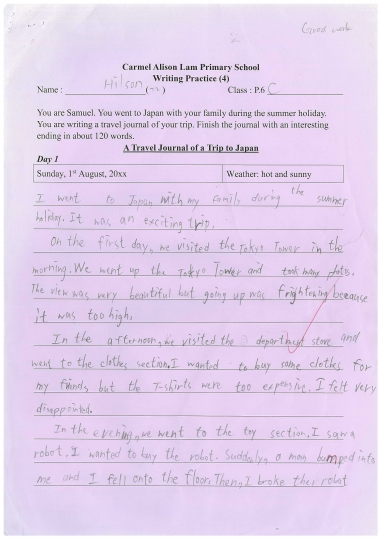 Good work
Carmel Alison Lam Primary School
Writing Practice (4)
Name : Hilson ( ) Class : P.6 C
You are Samuel. You went to Japan with your family during the summer holiday.
You are writing a travel journal of your trip. Finish the journal with an interesting
ending in about 120 words.
A Travel Journal of a Trip to Japan
Day 1
Sunday, 1st August, 20xx Weather: hot and sunny
I went to Japan with my family during the summer
holiday. It was an exciting trip.
On the first day, we visited the Tokyo Tower in the
morning. We went up the Tokyo Tower and took many photos.
The view was very beautiful but going up was frightening because
it was too high.
In the afternoon, we visited the department store and
went to the clothes section. I wanted to buy some clothes for
my friends, but the T-shirts were too expensive. I felt very
disappointed.
In the evening, we went to the toy section. I saw a
robot. I wanted to buy the robot. Suddenly, a man bumped into
me and I fell onto the floor. Then, I broke ther robot